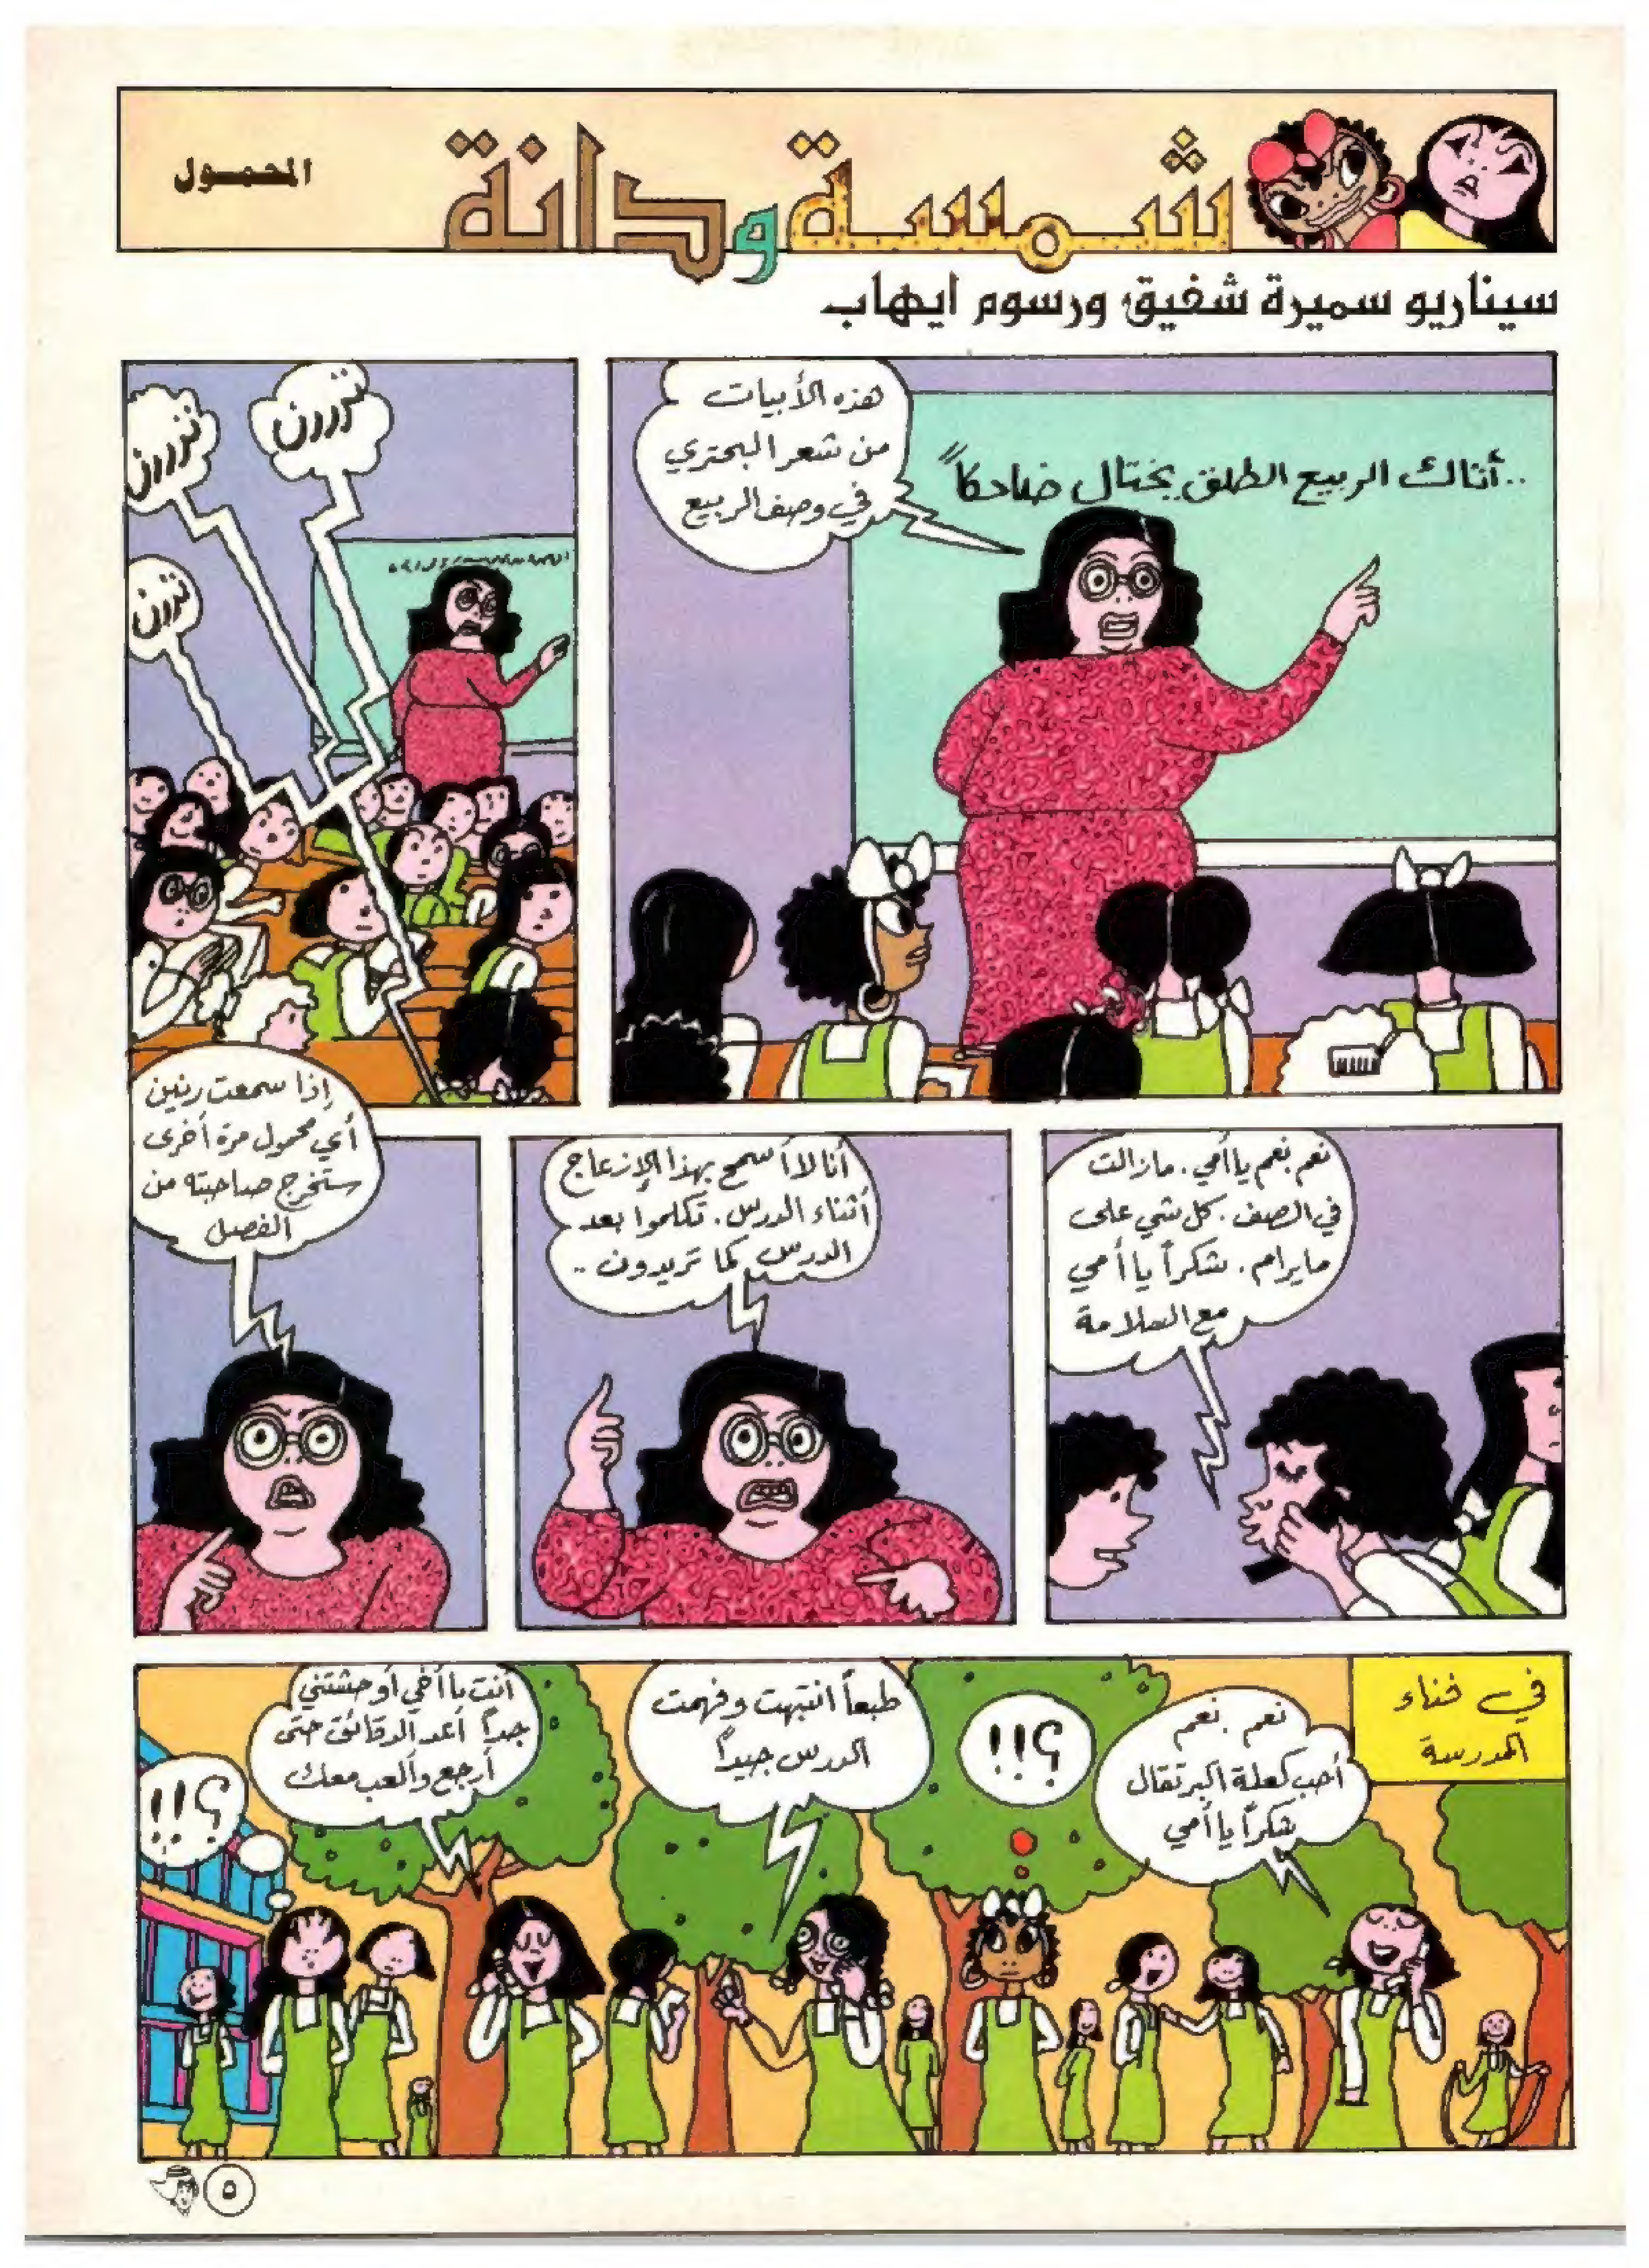 شمسة ودانة
المحمول
سيناريو سميرة شفيق ورسوم ايهاب
هذه الأبيات
من شعر البحتري
في وصف الربيع
..أتاك الربيع الطلق يختال ضاحكاً
تررررن
تررررن
تررن
نعم نعم يا أمي. مازالت
في الصف. كل شي على
مايرام. شكراً يا أمي
مع السلامة
أنا لا أسمح بهذا الإزعاج
أثناء الدرس. تكلموا بعد
الدرس كما تريدون ..
إذا سمعت رنين
أي محمول مرة أخرى
ستخرج صاحبته من
الفصل
في فناء
المدرسة
نعم. نعم
أحب كعكة البرتقال
شكراً يا أمي
؟!!
طبعاً انتبهت وفهمت
الدرس جيداً
أنت يا أخي أوحشتني
جداً أعد الدقائق حتى
أرجع وألعب معك
؟!!
٥